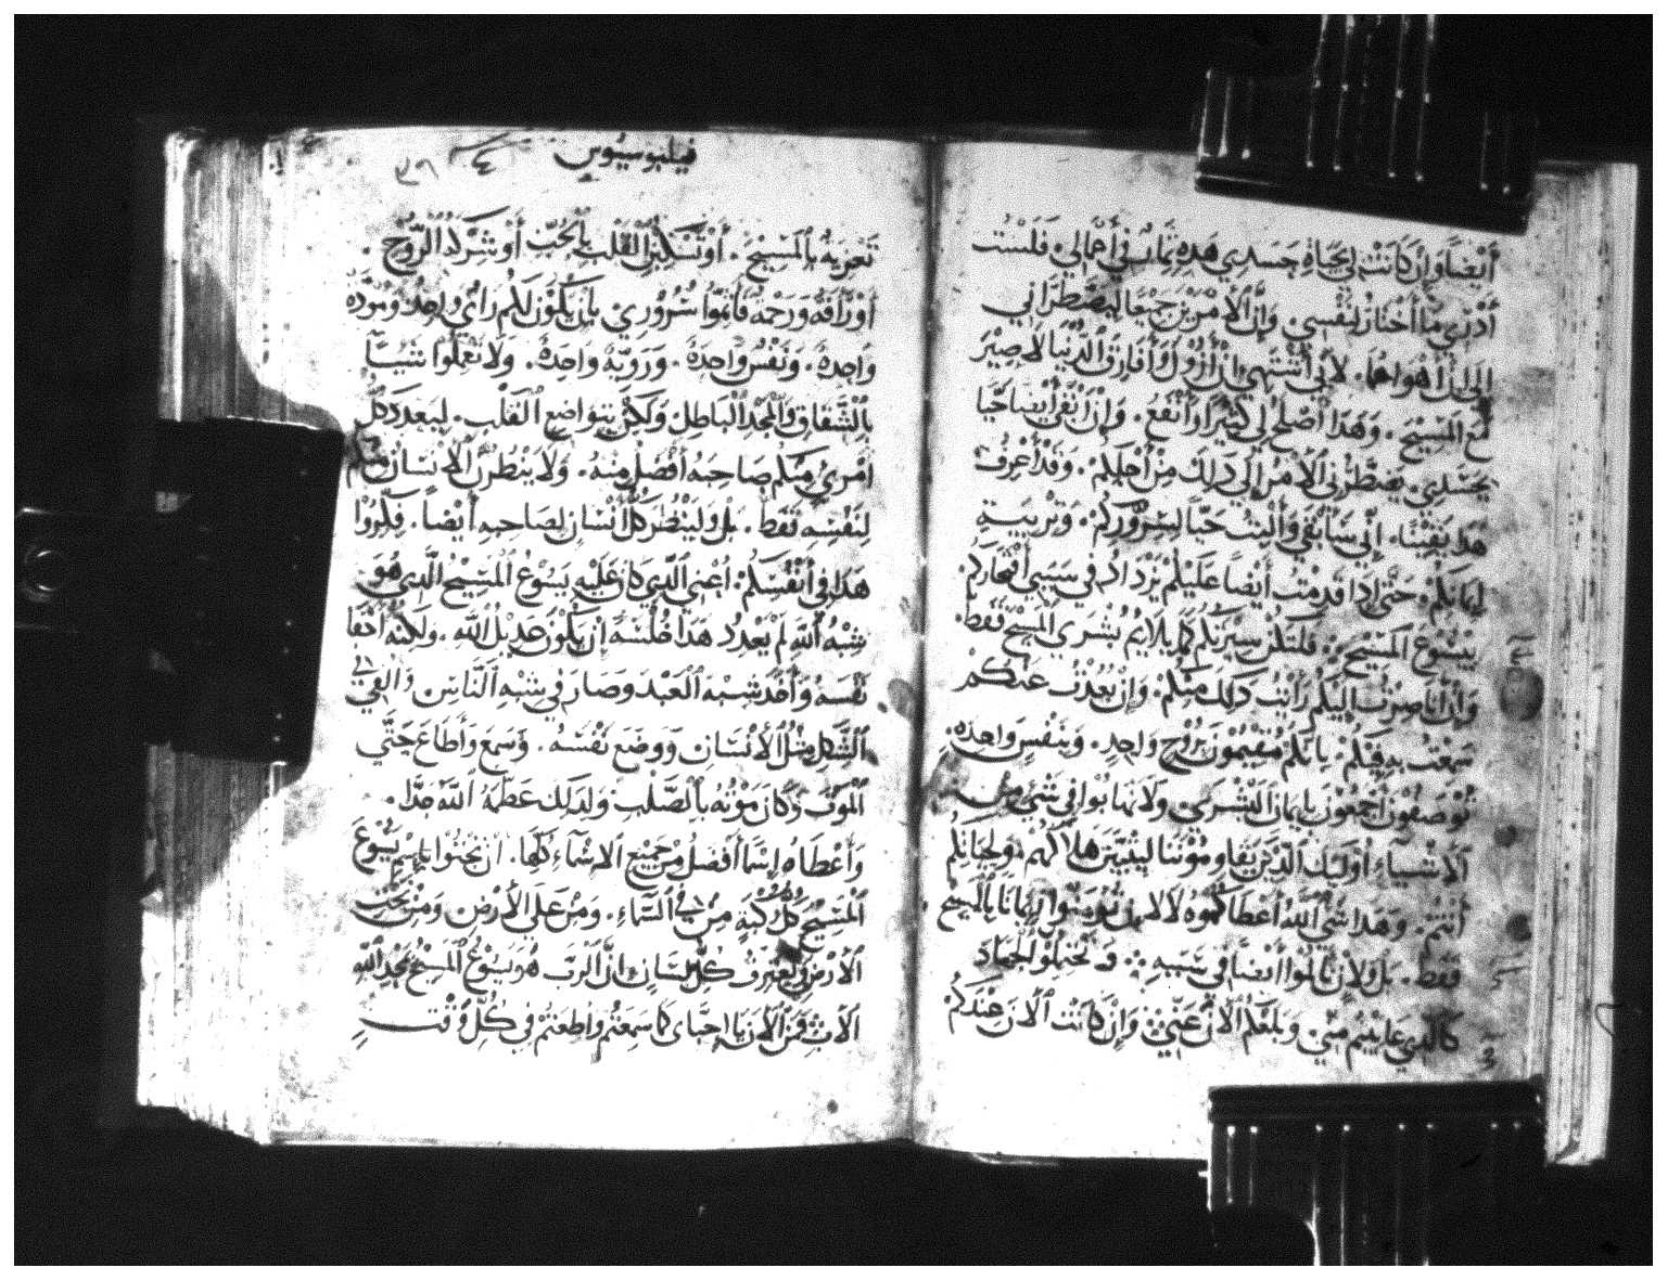 أيضًا وَإن كَانَتْ لي حَياة جَسَدِي هَدِه ثمَاث في أعْمَالي فَلسْت
أدْرِي مَا أختارُ لنَفسِي. وَإنَّ الأمْرَيْن جَميْعًا ليضْطَرَاني
إلي ان أهْوَاهُمَا. لأني أشتَهي ان أزُول وَأفَارق الدُّنْيَا لأصِيْرَ
مَع المَسِيْحَ. وَهَدَا أصْلحُ لي كثيْرًا وَأنْفَعُ. وَإنْ أبْقَ أيْضَا حَيًّا
بجَسَدي. يَضطَرُني الأمْرُ إلي دَلِكَ مِنْ أجْلِكم. وَقدْ أعْرفُ
هَدَا يَقيْنًا. إنّي سَأبْقَي وَألبَتُ حَيًّا لسُرُوركم. وَترْبيَةِ
إيْمَانكُم. حَتَّي إدَا قدِمْت أيْضًا عَلَيْكُم يَزْدَادُ في سَبَبي أفتخَاركُم
بيَسُوع المَسِيْح. فَلتَكُن سِيْرَتكُم كمَا يلايمُ بُشرَي المَسِيْح فَقَط.
وَإن أنَا صِرْتُ إليَكُم رَأيْتُ دَلِكَ مِنْكُم. وَإنْ بَعُدْتُ عَنكُم
سَمعْتُ به فِيْكُم. بأنكُم مُقيْمُونَ برُوْح وَاحِدٍ. وَبنَفْسٍ وَاحِدَه.
تُوْصَفُونَ أجْمعُوْنَ بإيمَان البُشْرَي. وَلا تهَابُوا في شَيْءٍ مِن
الأشيَاءِ أوُلَيِكَ الَّدِيْنَ يقَاومُوْنَنا ليَتَبيَّن هَلاَكهُم. وَلحيَاتِكُم
أنْتُم. وَهَدَا شَي اللَّهُ أعْطَاكُمُوْهُ لا لان تُؤمِنُوا إيمَانًا بالمَسِيْح
فَقَط. بَل وَلأن تألمُوا أيضًا في سَبَبهِ. وَتحْتَمِلُوا الجهَادَ
كَالَّدي عَايَنْتُم منّي. وَبَلَغَكُم الأنَ عَنّي. وَإنْ كَانَت الآنَ عَنْدَكُم
فيليبوسيُوس
تَعْزيَةُ بالمَسِيْحَ. أوْ تَسْكِيْن القَلب بالحُبّ أوْ شِرْكَةُ الرُّوْح.
أوْ رَأفَةُ وَرَحْمَة فَأتمّوا سُرُوْري بأن يَكُوْن لكُم رَأيٌ وَاحِدُ وَمَوَدَّه
وَاحِدَةُ. وَنَفْسُ وَاحِدَةُ. وَرَويَّةُ وَاحِدَةُ. وَلا تعْمَلُوا شَيئًا
بالشّقَاق وَالمجْد البَاطِل وَلَكن بتَوَاضع القَلْب. ليَعْدد كلُّ
امْرئ مِنكُم صَاحبَه أفْضَل منْهُ. وَلا يَنْظُرنَّ الإنْسَان مِنكُم
لنَفْسِه فَقَط. بَل وَليَنْظُر كُلّ أنْسَان لصَاحبه أيْضًا. فَكّرُوا
هَدَا في أنفُسِكُم. أعْني الَّدي كَانَ عَلَيْه يَسُوْعُ المَسِيْحُ الَّدي هُوَ
شِبْهُ اللَّه لم يَعْددُ هَدَا خُلْسَةً ان يَكُوْنَ عَديْل اللَّه. وَلكِنّه أخْفَا
نَفْسَهُ وَأخَدَ شِبْهَ العَبْدَ وَصَارَ في شِبْهِ النَّاسِ وَالفي في
الشَّكلِ مِثْلُ الأنْسَان وَوَضَعَ نَفْسَهُ. وَسَمِعَ وَأطَاعَ حَتَّي
المَوْتَ وَكَانَ مَوْتُهُ بالصَّلْبِ وَلدَلِك عَظّمَهُ اللَّهُ جدًّا.
وَأعْطَاهُ اسْمًا أفْضَلُ مِنْ جَميْع الاسْمَاءِ كُلّهَا. ان تجثُوا باسْم يَسُوْعَ
المَسِيْح كُلُّ رُكْبَةٍ مِنْ في السَّمَاءِ. وَمَنْ عَلَي الأرْضِ وَمَنْ تَحْت
الأرْضِ وَيَعْتَرفُ كلّ لسَانٍ انَّ الرَّبَّ هُوَ يَسُوْعُ المَسِيْحُ لمجْدِ اللَّه
الأبِ فَمنْ الآن يَا احبَّاي كمَا سَمعْتُم وَاطعْتُمْ في كُلّ وَقْتٍ